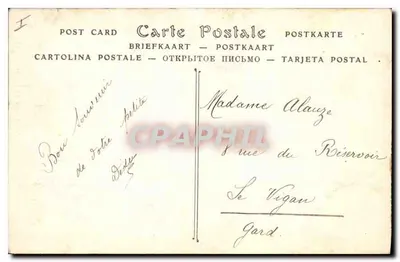 I
POST CARD Carte Postale POSTKARTE
BRIEFKAART — POSTKAART
CARTOLINA POSTALE — ОТКРЫТОЕ ПИСЬМО — TARJETA POSTAL
Bon souvenir
de votre petite
Madame Alauze
8 rue du Réservoir
Le Vigan
Gard.
CPAPHIL